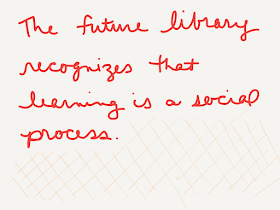 The future library
recognizes that
learning is a social
process.